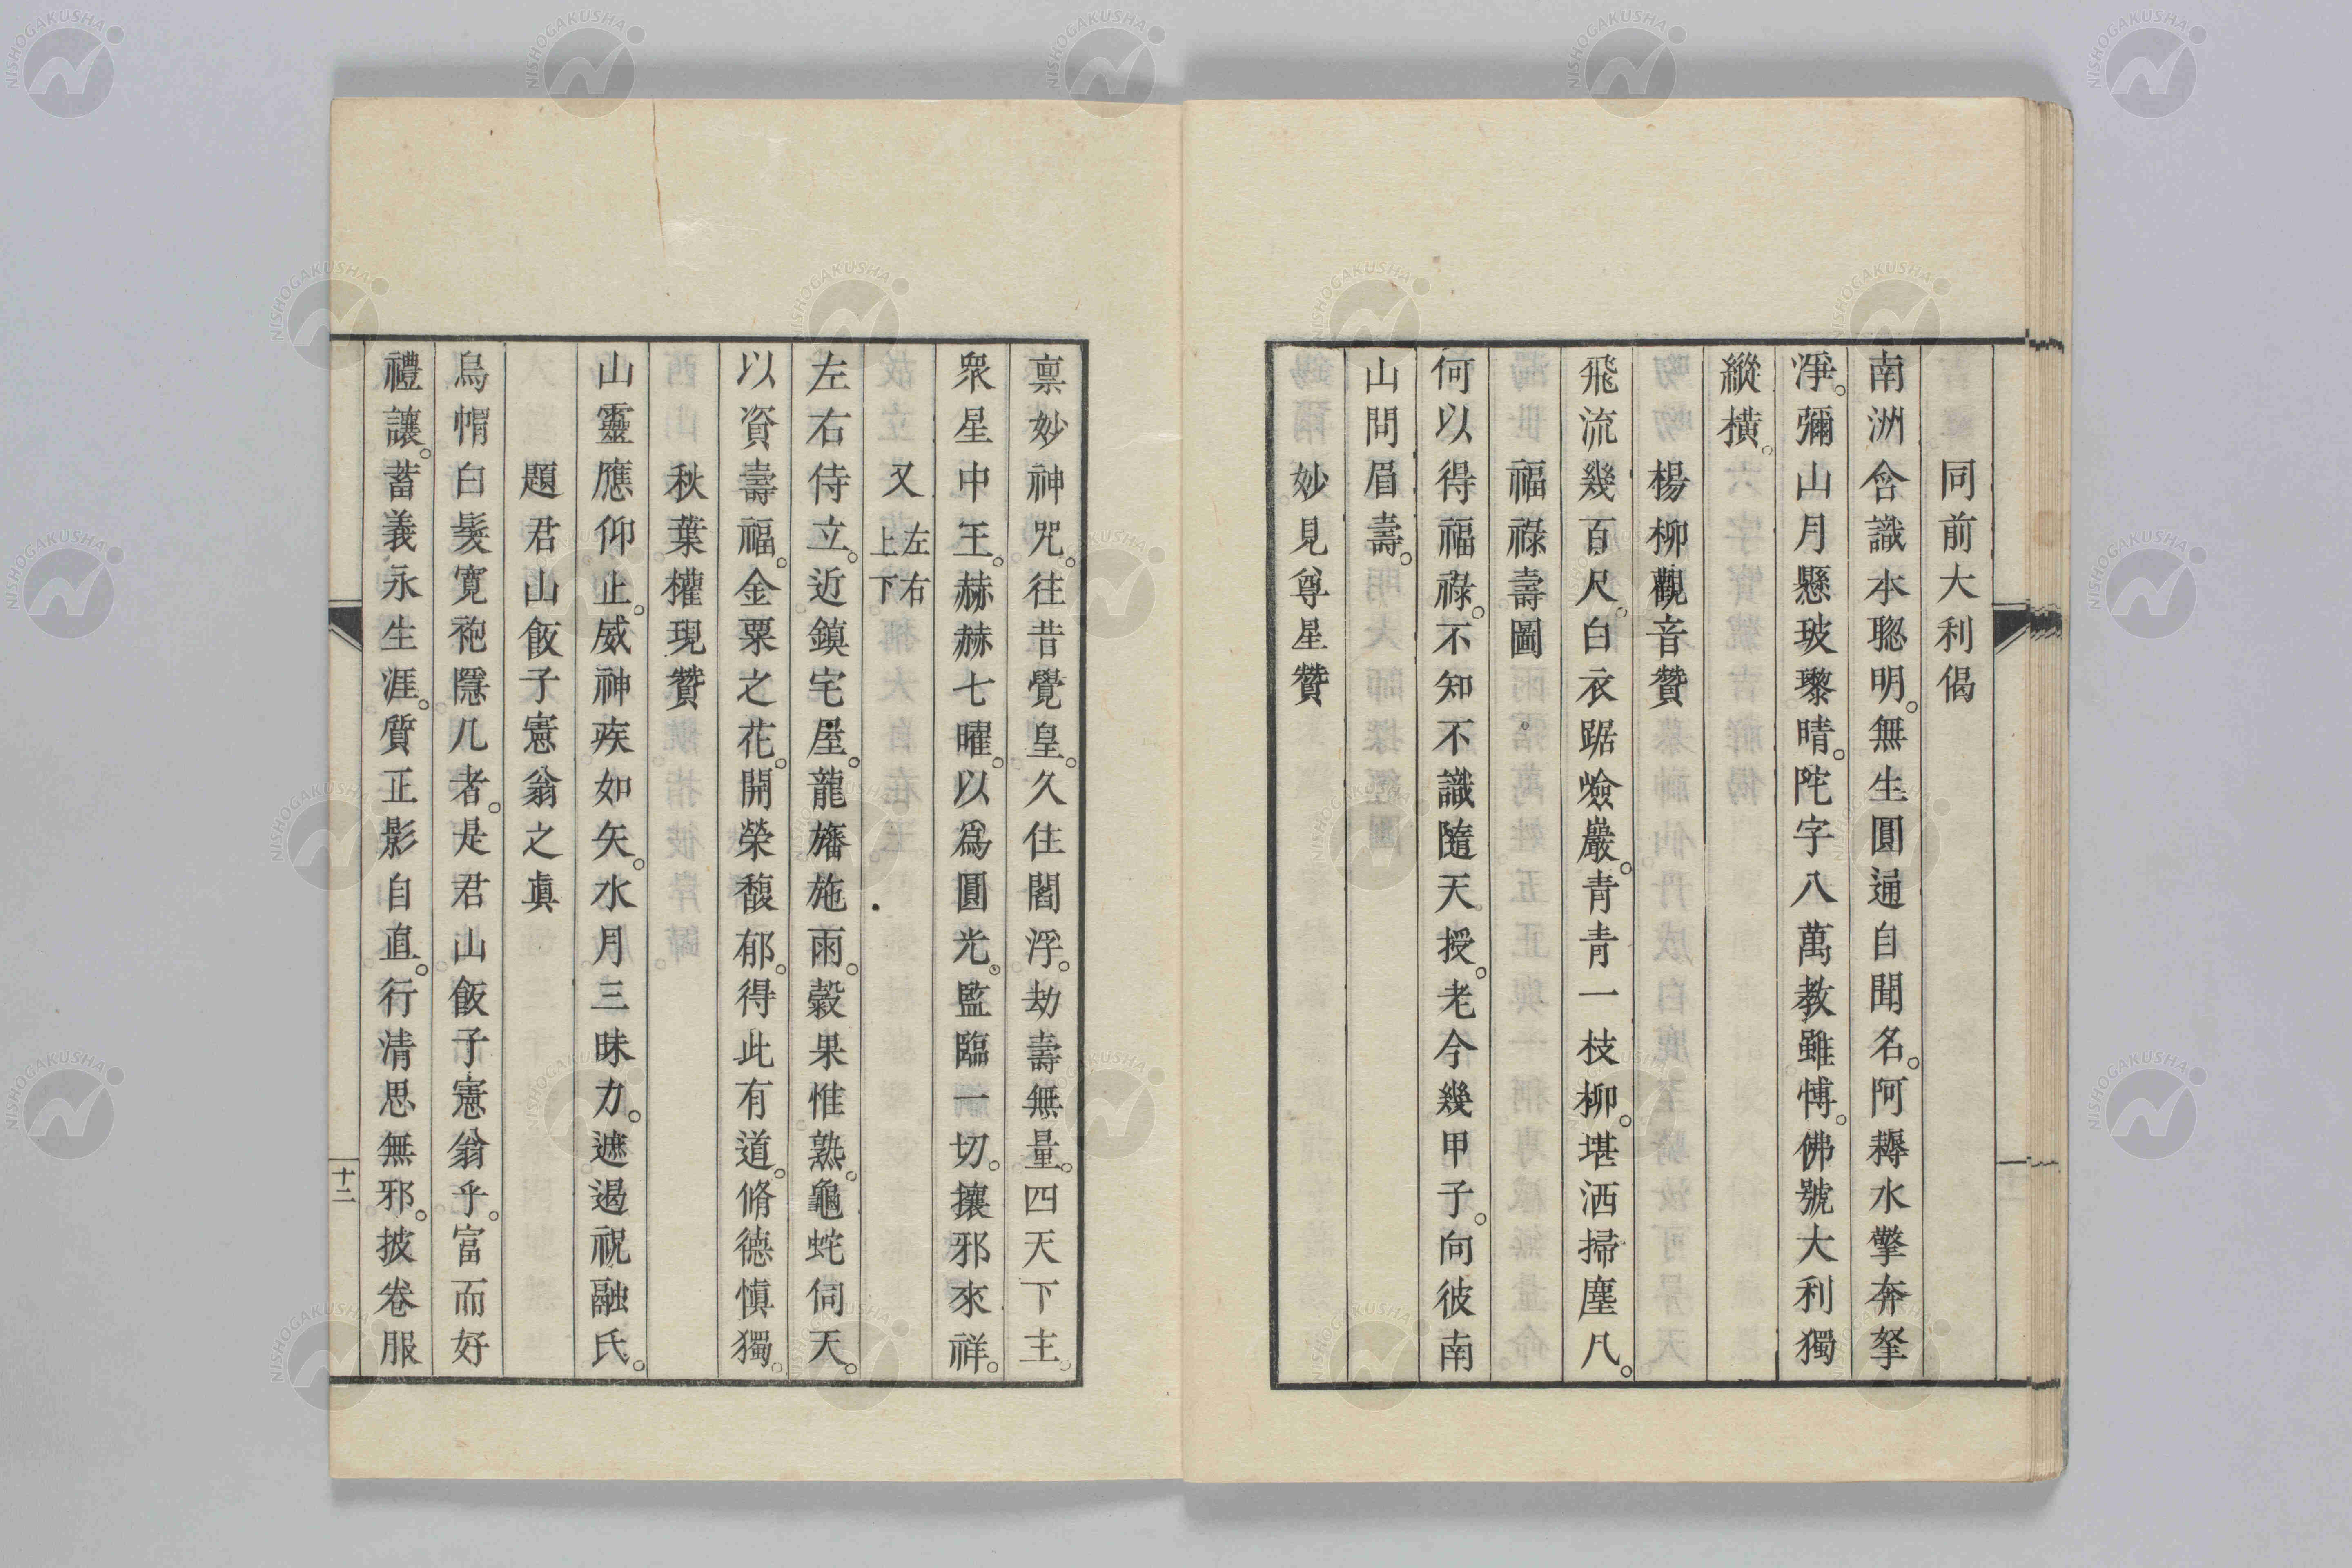 同前大利偈
南洲含識本聰明。無生圓通自聞名。阿耨水擎奔拏
淨。彌山月懸玻瓈晴。陀字八萬教雖博。佛號大利獨
縱橫。
楊柳觀音贊
飛流幾百尺。白衣踞嶮巖。青青一枝柳。堪洒掃塵凡。
福祿壽圖
何以得福祿。不知不識隨天授。老今幾甲子。向彼南
山問眉壽。
妙見尊星贊
稟妙神咒。往昔覺皇。久住閻浮。劫壽無量。四天下主。
衆星中王。赫赫七曜。以爲圓光。監臨一切。攘邪來祥。
又 左右上下
左右侍立。近鎮宅屋。龍旛施雨。穀果惟熟。龜蛇伺天。
以資壽福。金粟之花。開榮馥郁。得此有道。脩德愼獨。
秋葉權現贊
山靈應仰止。威神疾如矢。水月三昧力。遮遏祝融氏。
題君山飯子憲翁之眞
烏帽白髮寛袍隱几者。是君山飯子憲翁乎。富而好
禮讓。蓄義永生涯。質正影自直。行清思無邪。披卷服
十二
NISHOGAKUSHA